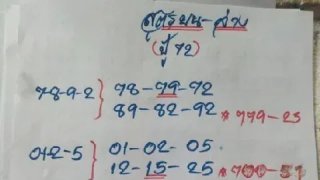 สูตรบน-ล่าง
(ปู่ 72)
78-9-2 } 78-79-72
89-82-92 * 779-23
012-5 } 01-02-05
12-15-25 * 700-51